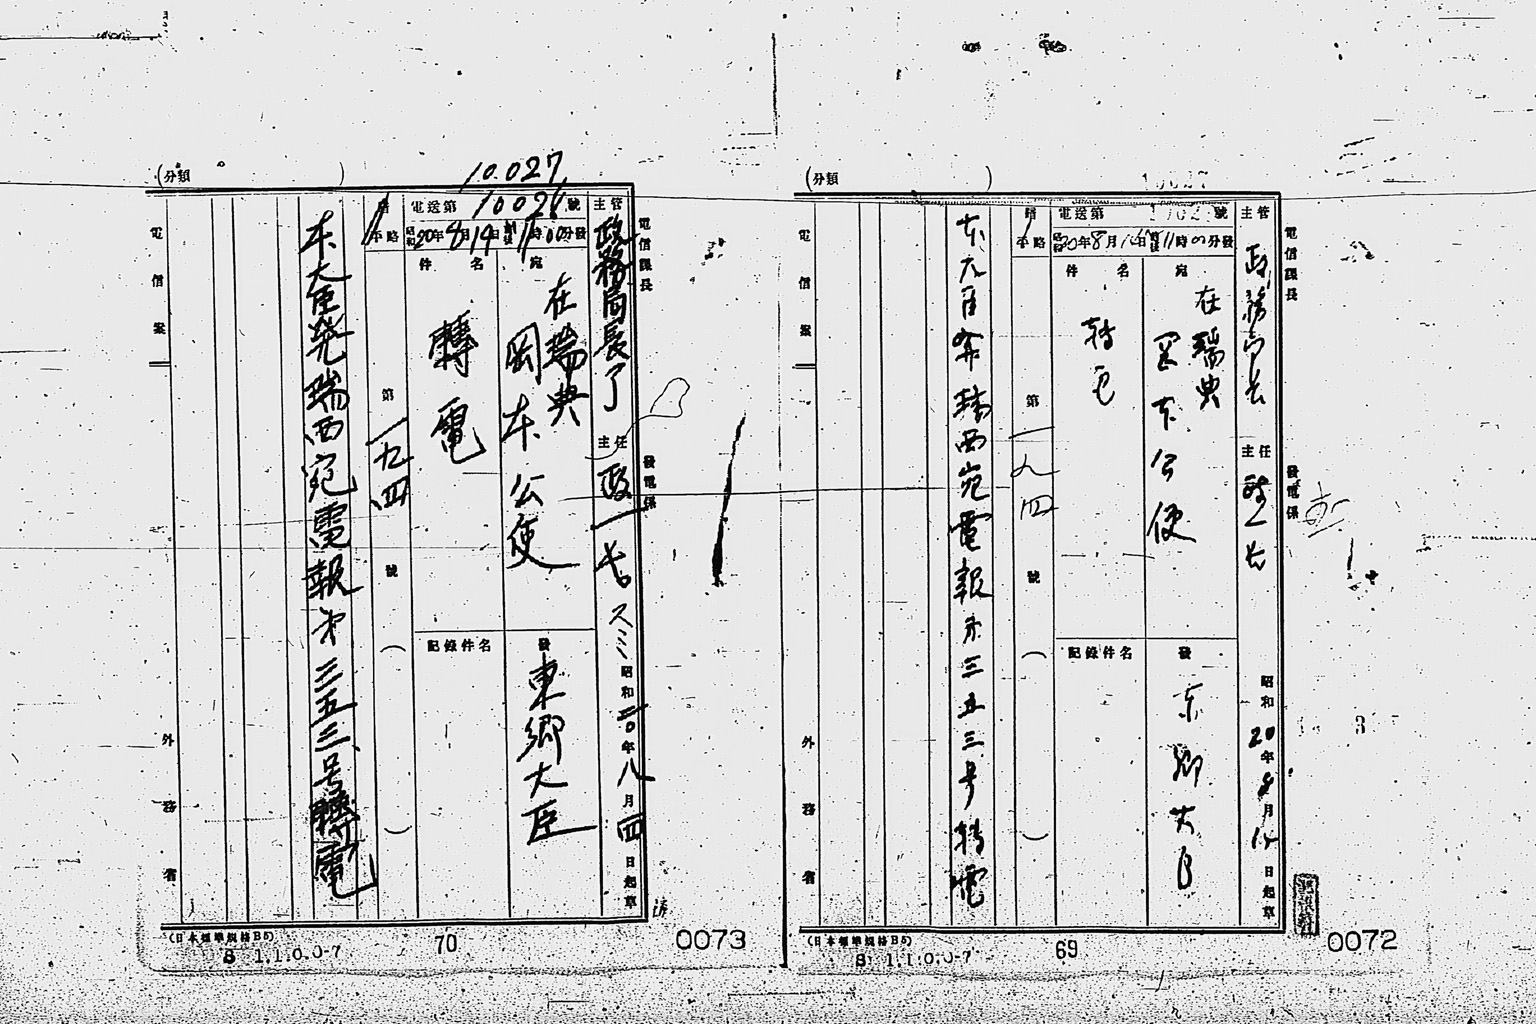 (分類　　)
電送第　號
昭和20年8月　日　後11時00分發
暗
平略
主管　政務局長
主任　政一長
昭和20年8月　日起草
電信課長
發電係
宛　在瑞典
岡本公使
發　東郷大臣
件名　轉電
記錄件名
第一九四號　(　　)
本大臣発瑞西宛電報第三五三号轉電
電信案
外務省
(日本標準規格B5)
8 1.1.0.0-7
69
0072
(分類　　)
10027
電送第　10026　號
昭和20年8月14日　後11時00分發
暗
平略
主管　政務局長了
主任　政一長
スミ
昭和二〇年八月　日起草
電信課長
發電係
宛　在瑞典
岡本公使
發　東郷大臣
件名　轉電
記錄件名
第一九四號　(　　)
本大臣発瑞西宛電報第三五三号轉電
電信案
外務省
(日本標準規格B5)
8 1.1.0.0-7
70
0073